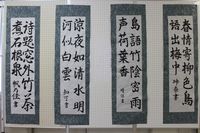 春情寄柳色鳥
語出梅中
鳥語竹陰密雨
声荷葉香
涼夜如清水明
河似白雲
詩題窓外竹茶
煮石根泉